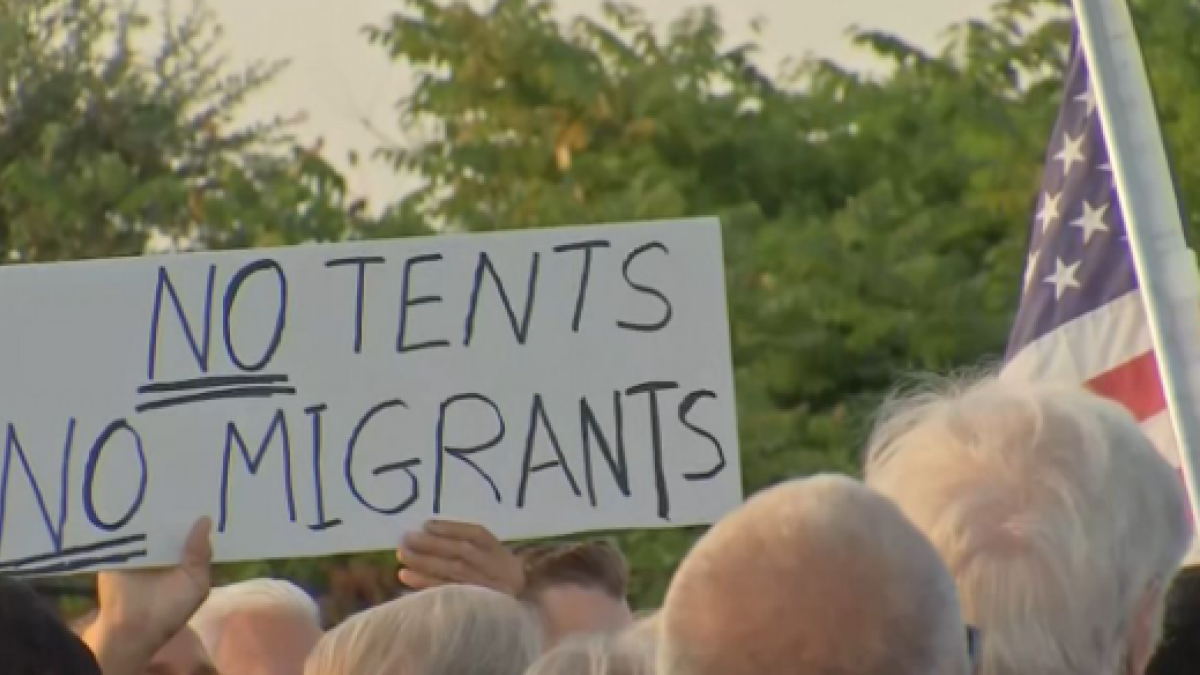 NO TENTS
NO MIGRANTS